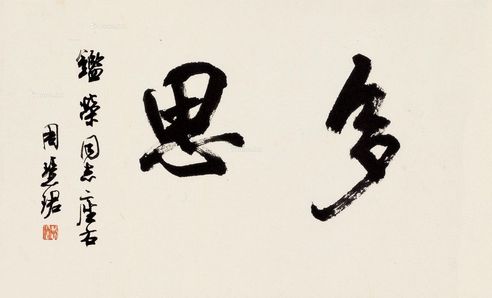 多思
鑑榮同志座右
周慧珺